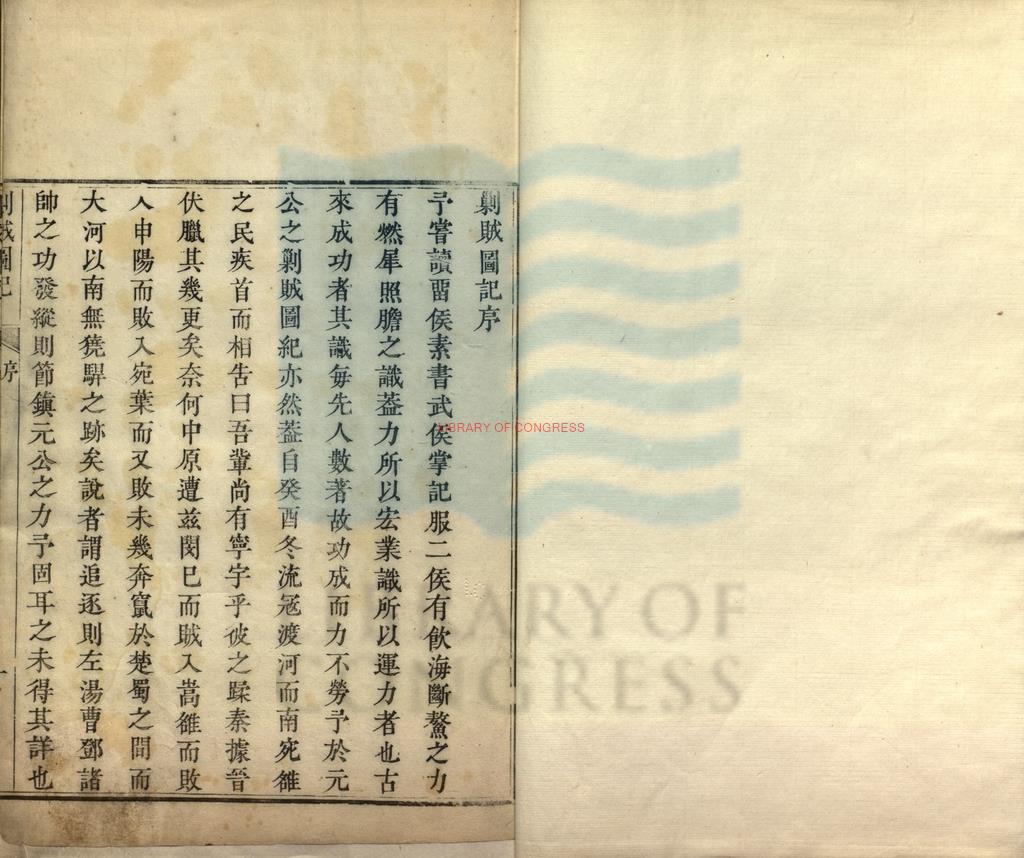 剿賊圖記序
予嘗讀畱侯素書武侯掌記服二侯有飮海斷鰲之力
有燃犀照膽之識葢力所以宏業識所以運力者也古
來成功者其識每先人數著故功成而力不勞予於元
公之剿賊圖紀亦然葢自癸酉冬流寇渡河而南宛雒
之民疾首而相告曰吾輩尚有寧宇乎彼之蹂秦據晉
伏臘其幾更矣奈何中原遭兹閔巳而賊入嵩雒而敗
入申陽而敗入宛葉而又敗未幾奔竄於楚蜀之間而
大河以南無獟騂之跡矣說者謂追逐則左湯曹鄧諸
帥之功發縱則節鎮元公之力予固耳之未得其詳也
剿賊圖記 序 一
LIBRARY OF CONGRESS
LIBRARY OF
CONGRESS